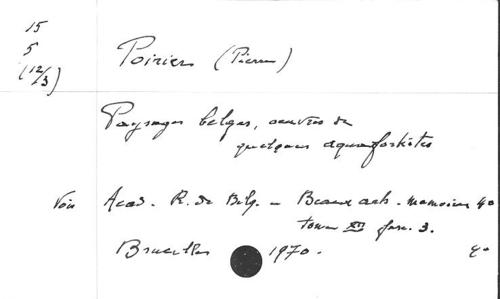 15
5
(12/3)
Poirier (Pierre)
Paysages belges, œuvres de
quelques aquafortistes
Voir Acad. R. de Belg. - Beaux arts. Memoires 4o
tome XII fasc. 3.
Bruxelles 1970. 4o